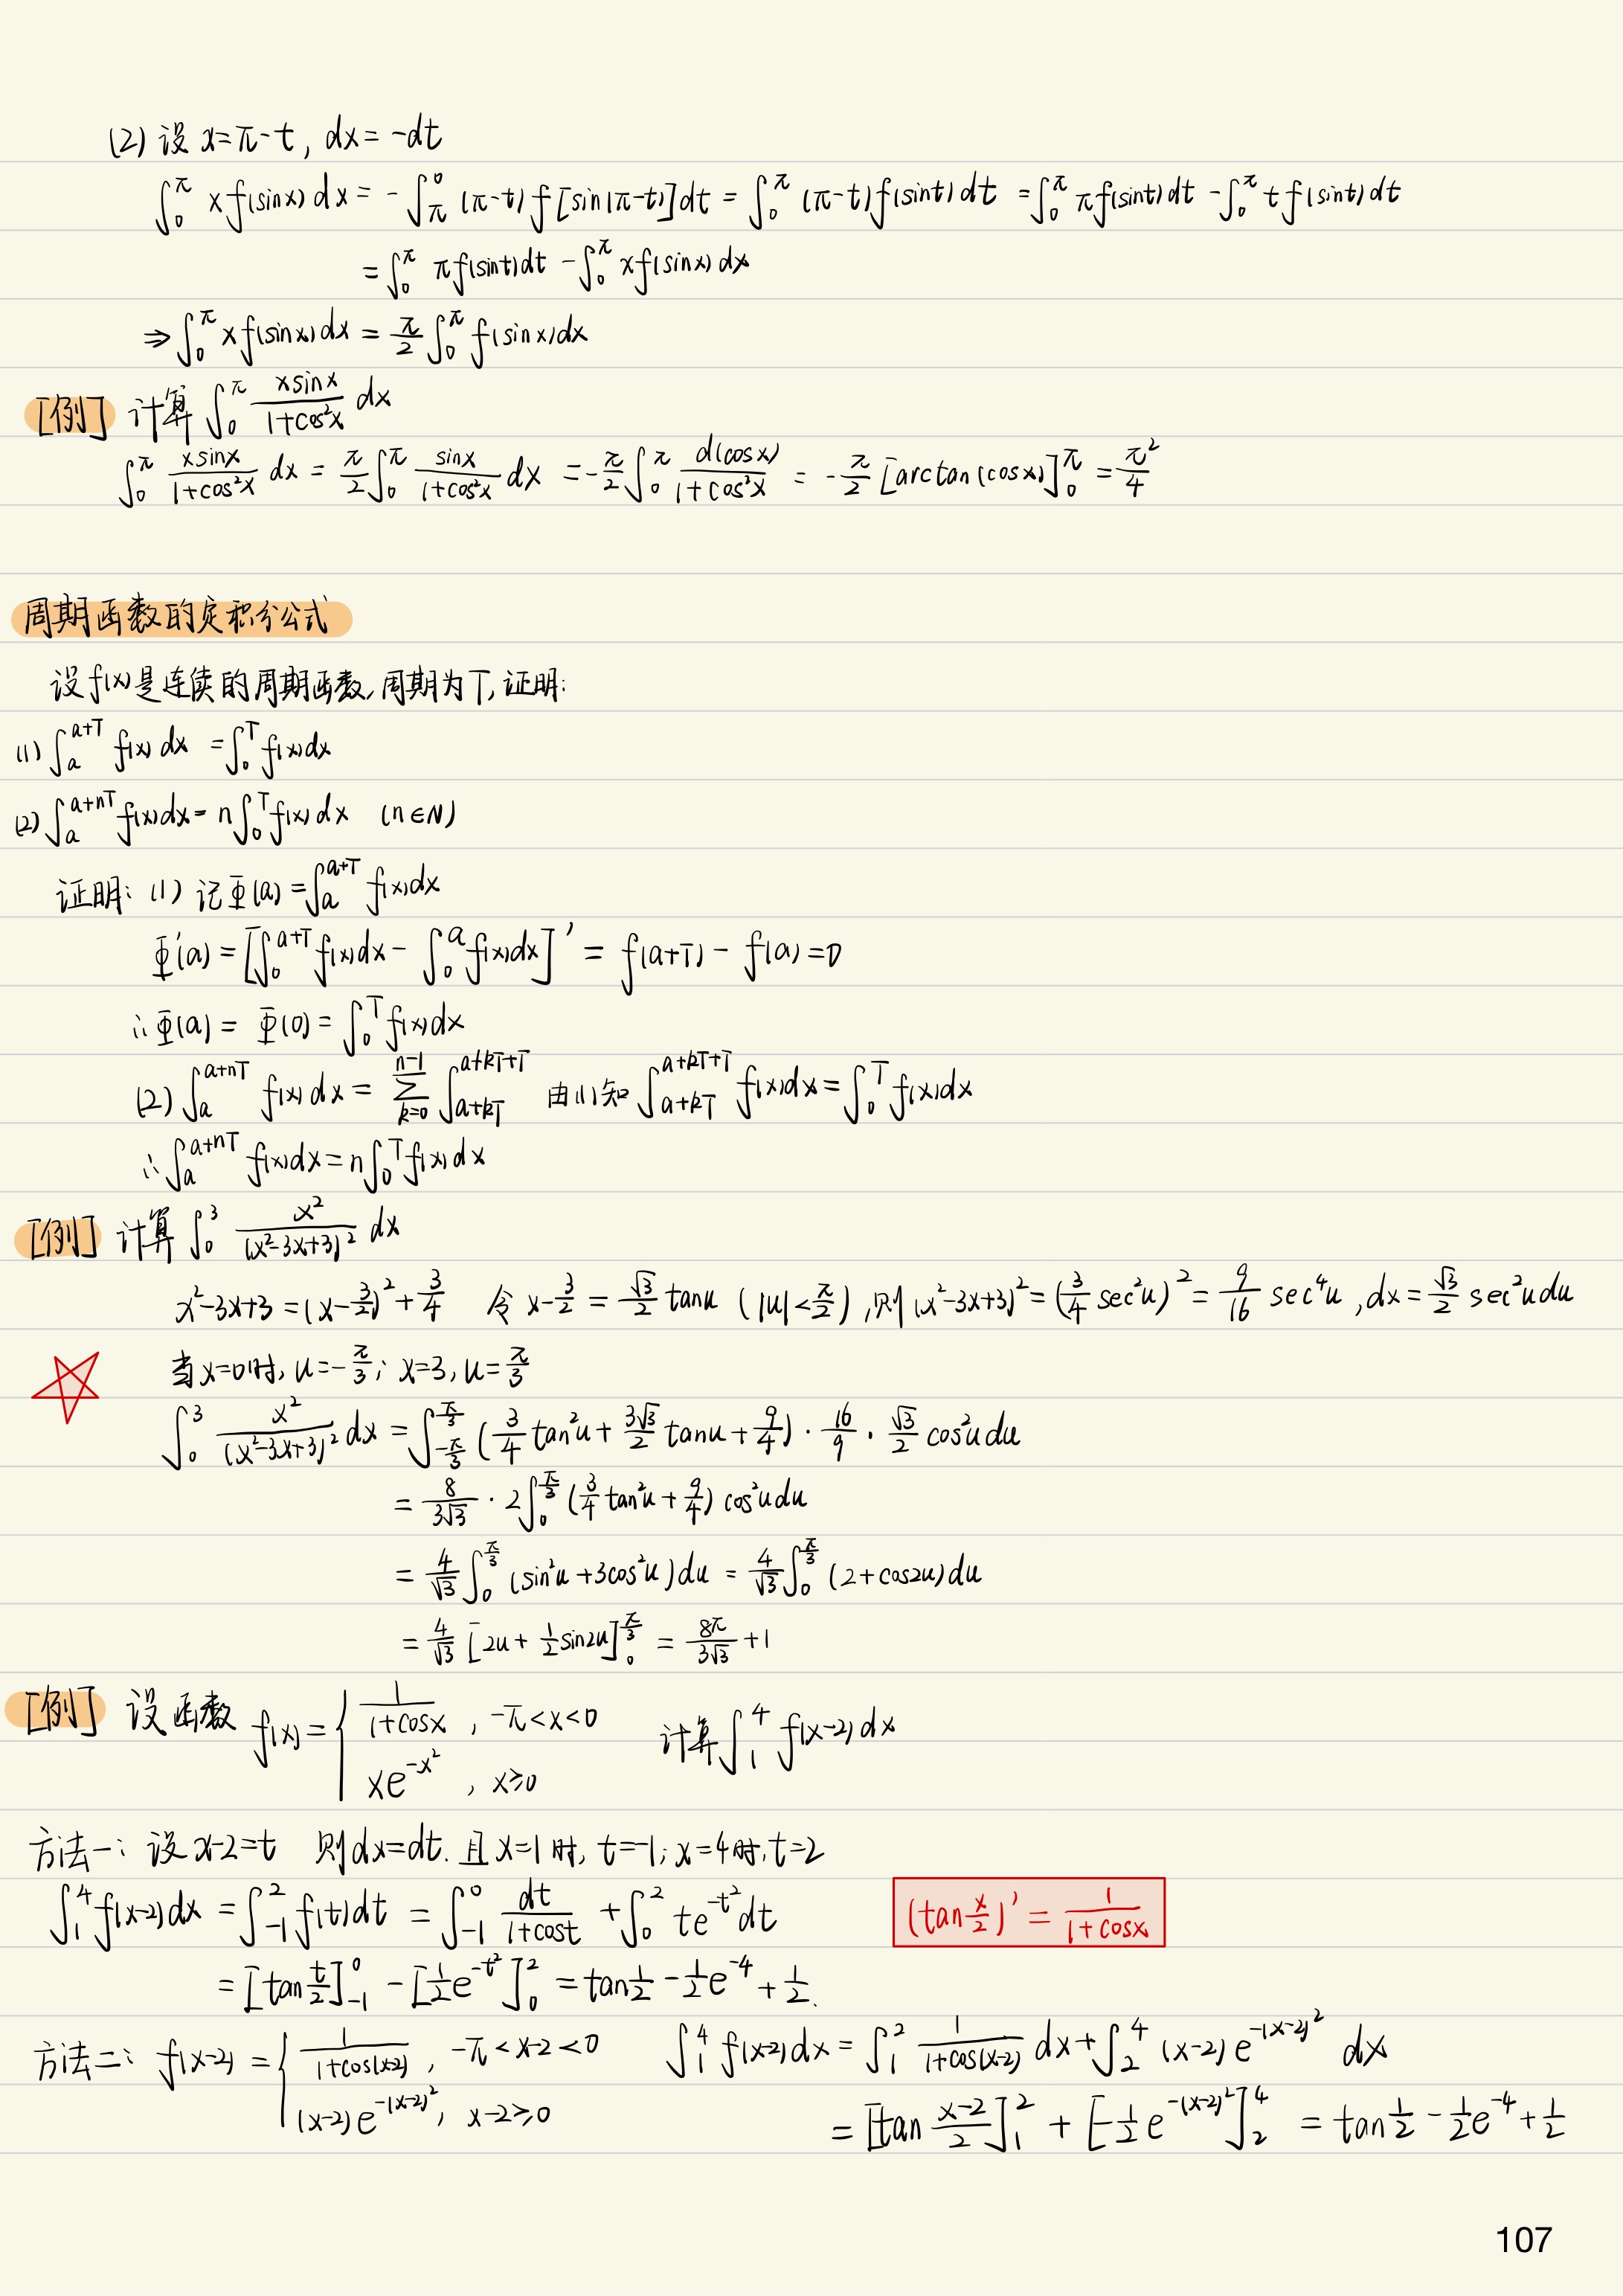 (2) 设 x=π-t, dx=-dt
∫₀^π xf(sinx)dx = -∫_π^0 (π-t)f[sin(π-t)]dt = ∫₀^π (π-t)f(sint)dt = ∫₀^π πf(sint)dt - ∫₀^π tf(sint)dt
= ∫₀^π πf(sint)dt - ∫₀^π xf(sinx)dx
⇒ ∫₀^π xf(sinx)dx = π/2 ∫₀^π f(sinx)dx
[例] 计算 ∫₀^π xsinx/(1+cos²x) dx
∫₀^π xsinx/(1+cos²x) dx = π/2 ∫₀^π sinx/(1+cos²x) dx = -π/2 ∫₀^π d(cosx)/(1+cos²x) = -π/2 [arctan(cosx)]₀^π = π²/4
周期函数的定积分公式
设f(x)是连续的周期函数,周期为T,证明:
(1) ∫_a^{a+T} f(x)dx = ∫₀^T f(x)dx
(2) ∫_a^{a+nT} f(x)dx = n∫₀^T f(x)dx (n∈N)
证明: (1) 记Φ(a) = ∫_a^{a+T} f(x)dx
Φ'(a) = [∫₀^{a+T} f(x)dx - ∫₀^a f(x)dx]' = f(a+T) - f(a) = 0
∴Φ(a) = Φ(0) = ∫₀^T f(x)dx
(2) ∫_a^{a+nT} f(x)dx = ∑_{k=0}^{n-1} ∫_{a+kT}^{a+kT+T} 由(1)知 ∫_{a+kT}^{a+kT+T} f(x)dx = ∫₀^T f(x)dx
∴∫_a^{a+nT} f(x)dx = n∫₀^T f(x)dx
[例] 计算 ∫₀³ x²/(x²-3x+3)² dx
x²-3x+3 = (x-3/2)²+3/4 令 x-3/2 = √3/2 tanu (|u|<π/2), 则(x²-3x+3)² = (3/4 sec²u)² = 9/16 sec⁴u, dx = √3/2 sec²udu
当x=0时, u=-π/3; x=3, u=π/3
∫₀³ x²/(x²-3x+3)² dx = ∫_{-π/3}^{π/3} (3/4 tan²u + 3√3/2 tanu + 9/4) · 16/9 · √3/2 cos²udu
= 8/(3√3) · 2∫₀^{π/3} (3/4 tan²u + 9/4) cos²udu
= 4/√3 ∫₀^{π/3} (sin²u+3cos²u)du = 4/√3 ∫₀^{π/3} (2+cos2u)du
= 4/√3 [2u + 1/2 sin2u]₀^{π/3} = 8π/(3√3) + 1
[例] 设函数 f(x) = { 1/(1+cosx), -π<x<0 计算∫₁⁴ f(x-2)dx
xe^{-x²}, x≥0
方法一: 设x-2=t 则dx=dt. 且x=1时, t=-1; x=4时, t=2
∫₁⁴ f(x-2)dx = ∫_{-1}^2 f(t)dt = ∫_{-1}^0 dt/(1+cost) + ∫₀² te^{-t²}dt (tan x/2)' = 1/(1+cosx)
= [tan t/2]_{-1}^0 - [1/2 e^{-t²}]₀² = tan 1/2 - 1/2 e^{-4} + 1/2.
方法二: f(x-2) = { 1/(1+cos(x-2)), -π<x-2<0 ∫₁⁴ f(x-2)dx = ∫₁² 1/(1+cos(x-2)) dx + ∫₂⁴ (x-2)e^{-(x-2)²} dx
(x-2)e^{-(x-2)²}, x-2≥0 = [tan (x-2)/2]₁² + [-1/2 e^{-(x-2)²}]₂⁴ = tan 1/2 - 1/2 e^{-4} + 1/2
107